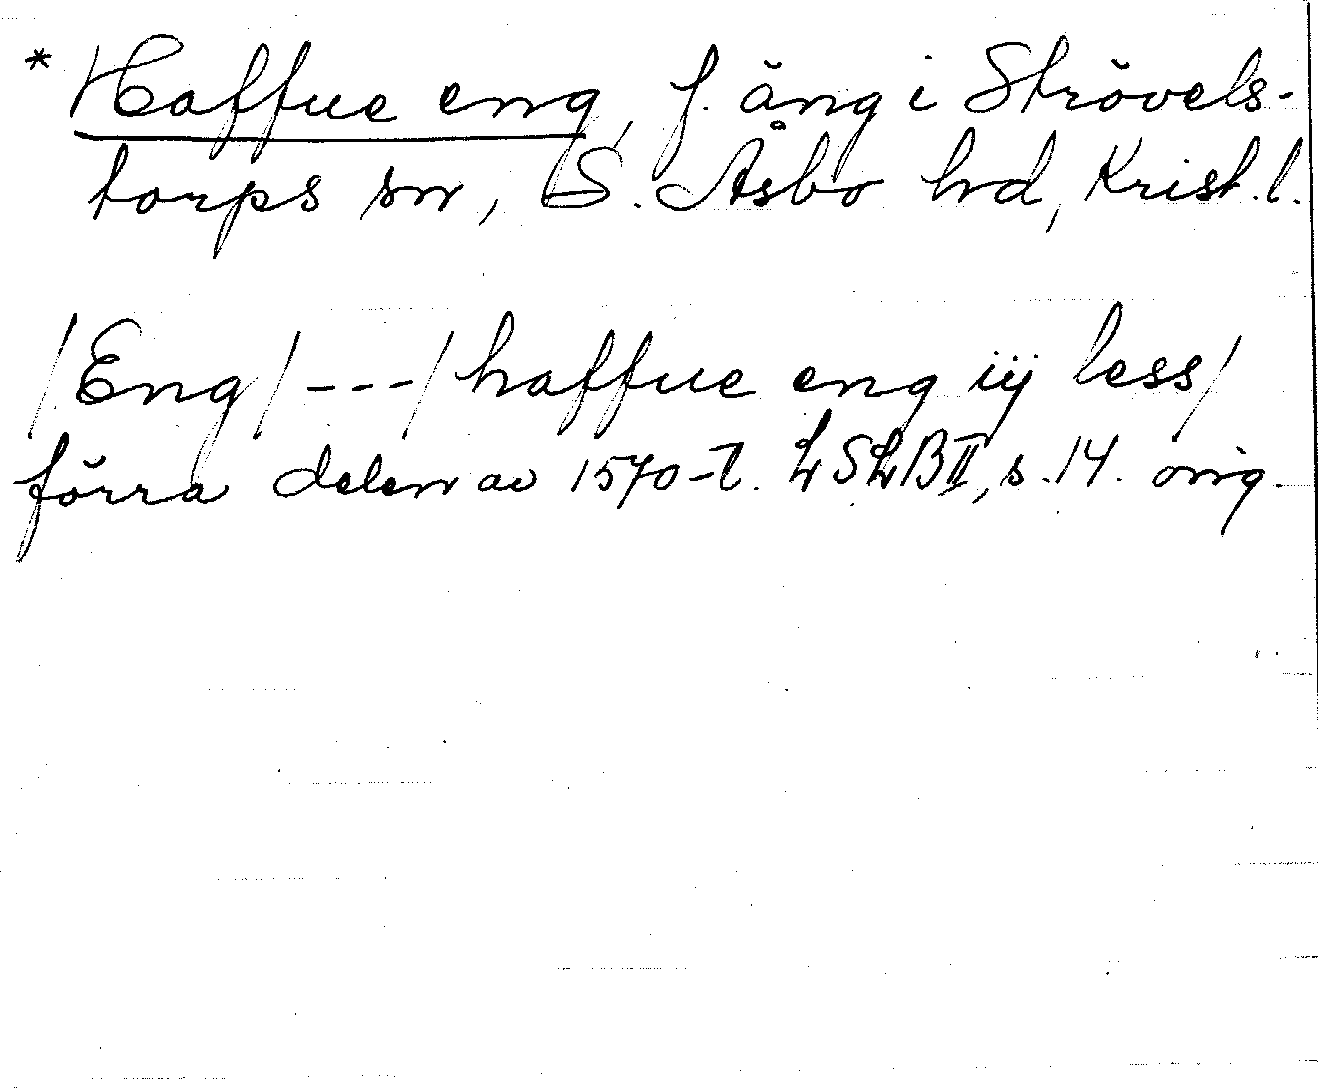 * Haffue eng, f. äng i Strövels-
torps sn, S. Åsbo hd, Krist. l.
/Eng/ - - - /haffue eng iij less/
förra delen av 1570-t. LSLB II, s. 14. orig.